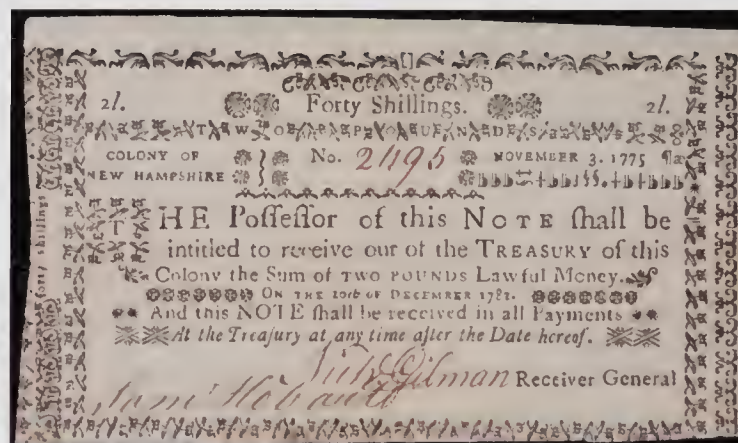 2l. Forty Shillings. 2l.
TWO POUNDS
COLONY OF
NEW HAMPSHIRE
No. 2495
NOVEMBER 3. 1775
THE Poſſeſſor of this NOTE ſhall be
intitled to receive out of the TREASURY of this
Colony the Sum of TWO POUNDS Lawful Money.
ON THE 20th OF DECEMBER 1782.
And this NOTE ſhall be received in all Payments
At the Treaſury at any time after the Date hereof.
Gilman Receiver General
Hobart
forty shillings